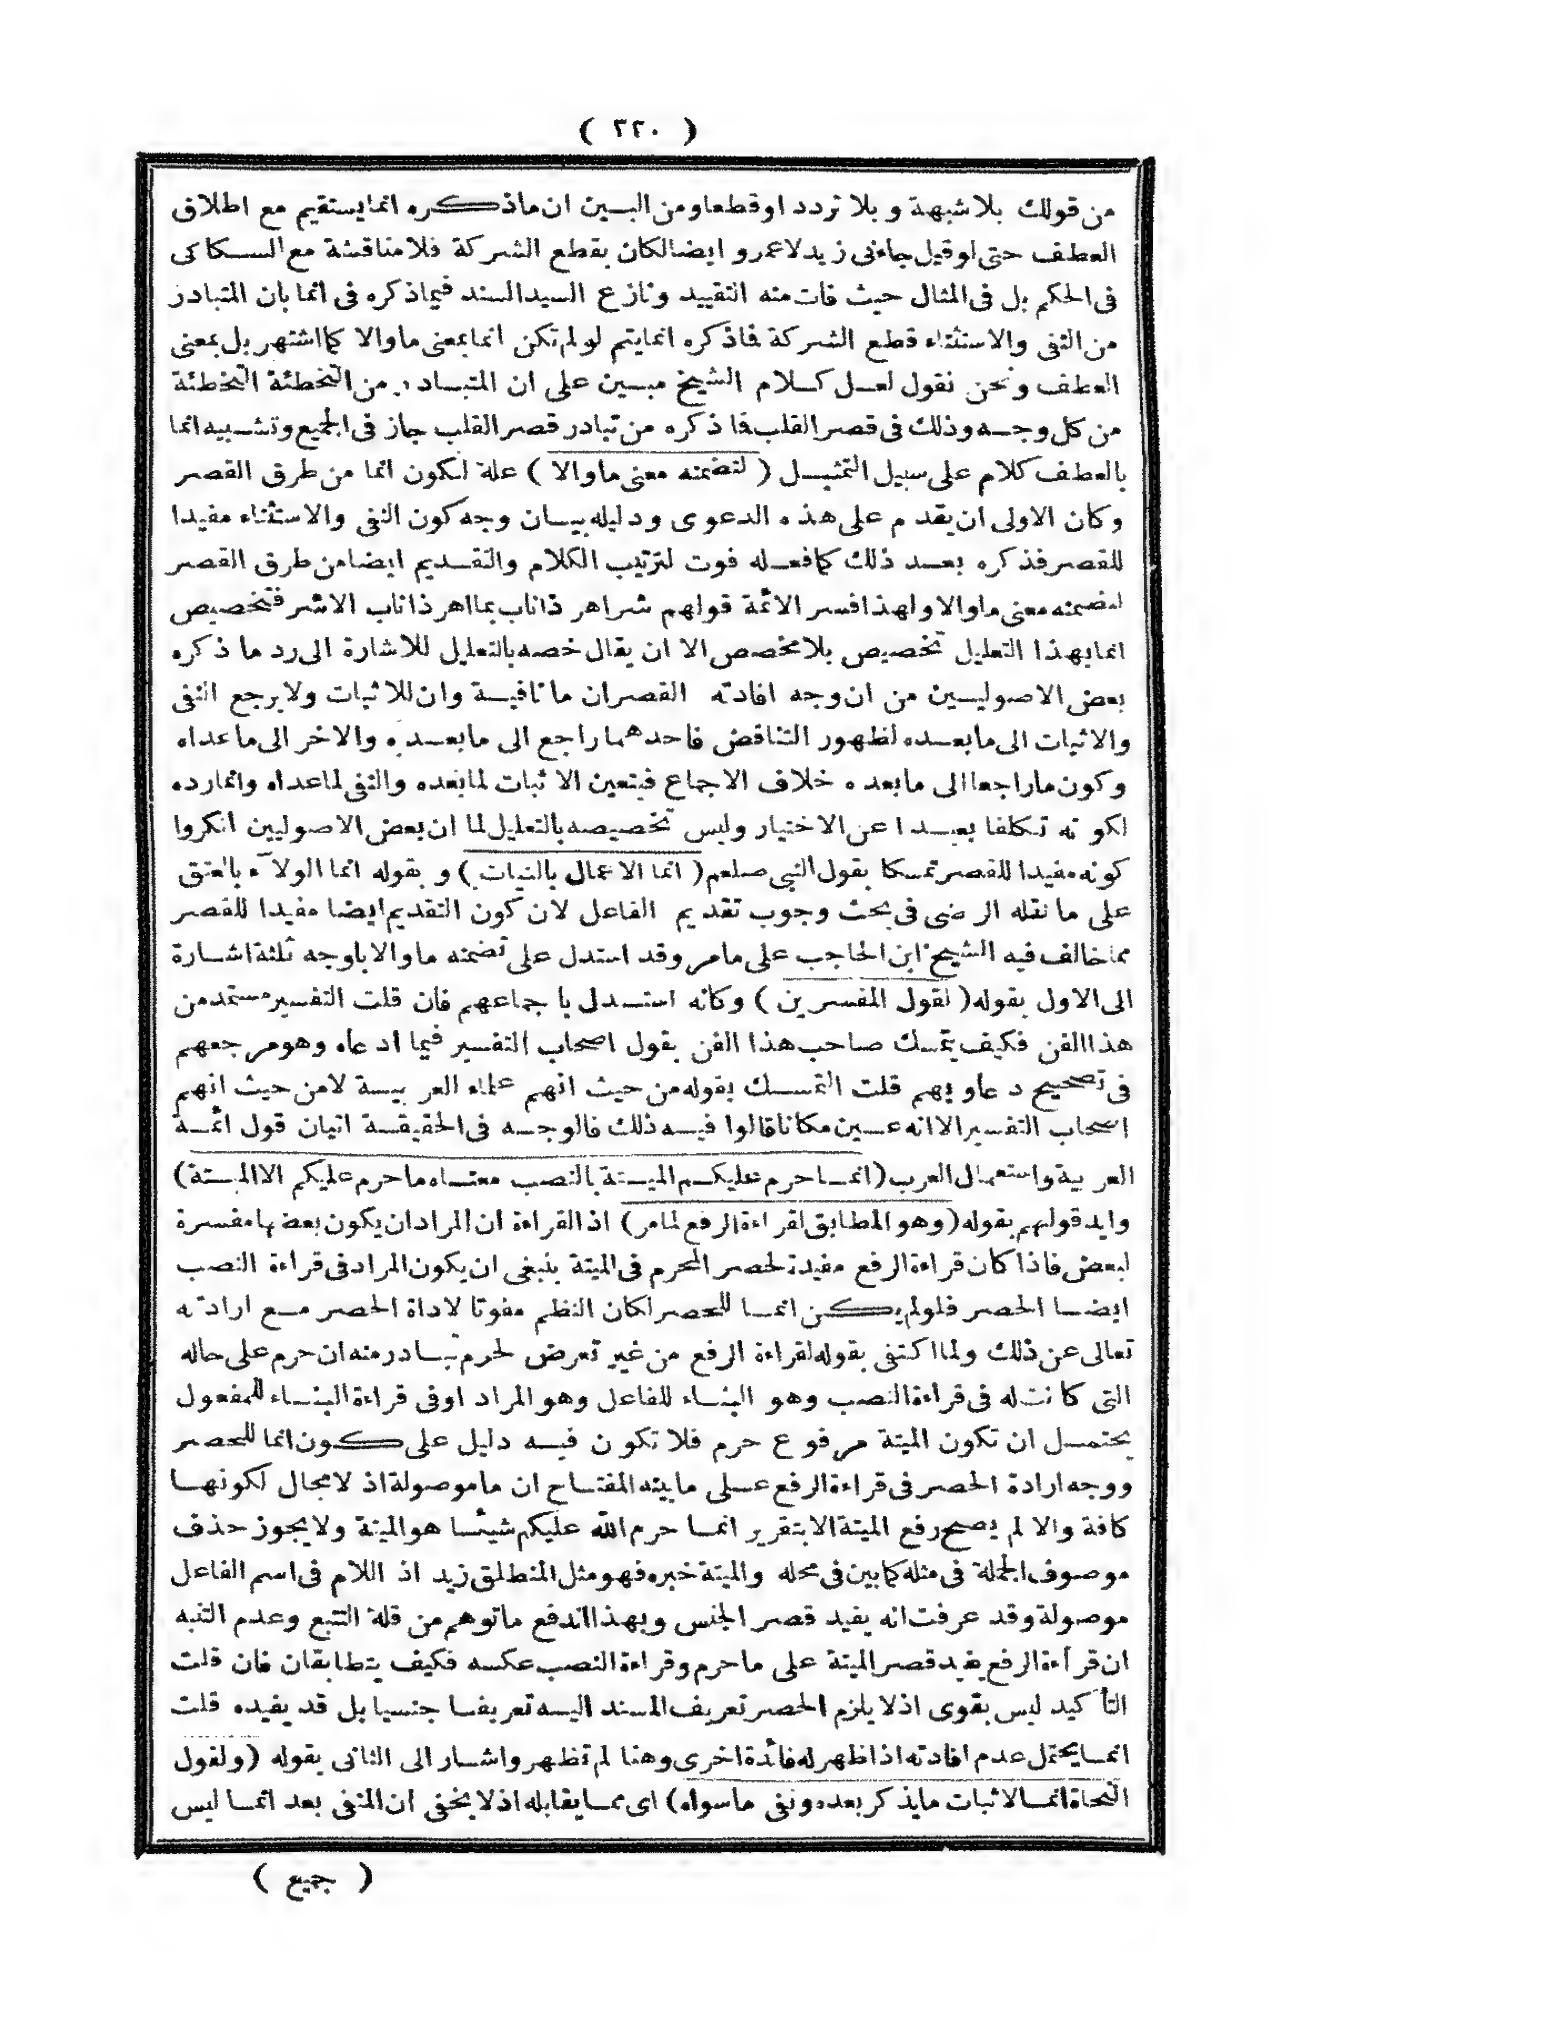 ( ٣٢٠ )
من قولك بلا شبهة و بلا تردد او قطعا ومن البين ان ما ذكره انما يستقيم مع اطلاق
العطف حتى لو قيل جاءنى زيد لا عمرو ايضا لكان بقطع الشركة فلا مناقشة مع السكاكى
فى الحكم بل فى المثال حيث فات منه التقييد ونازع السيد السند فيما ذكره فى انما بان المتبادر
من النفى والاستثناء قطع الشركة فما ذكره انما يتم لو لم تكن انما بمعنى ما والا كما اشتهر بل بمعنى
العطف ونحن نقول لعل كلام الشيخ مبين على ان المتبادر من التخطئة التخطئة
من كل وجه وذلك فى قصر القلب فما ذكره من تبادر قصر القلب جاز فى الجميع وتشبيه انما
بالعطف كلام على سبيل التمثيل ( لتضمنه معنى ما والا ) علة لكون انما من طرق القصر
وكان الاولى ان يقدم على هذه الدعوى ودليله بيان وجه كون النفى والاستثناء مفيدا
للقصر فذكره بعد ذلك كما فعله فوت لترتيب الكلام والتقديم ايضا من طرق القصر
لتضمنه معنى ما والا ولهذا فسر الائمة قولهم شر اهر ذا ناب بما اهر ذا ناب الا شر فتخصيص
انما بهذا التعليل تخصيص بلا مخصص الا ان يقال خصه بالتعليل للاشارة الى رد ما ذكره
بعض الاصوليين من ان وجه افادته القصر ان ما نافية وان للاثبات ولا يرجع النفى
والاثبات الى ما بعده لظهور التناقض فاحدهما راجع الى ما بعده والاخر الى ما عداه
وكون ما راجعا الى ما بعده خلاف الاجماع فيتعين الاثبات لما بعده والنفى لما عداه وانما رده
لكونه تكلفا بعيدا عن الاختيار وليس تخصيصه بالتعليل لما ان بعض الاصوليين انكروا
كونه مفيدا للقصر تمسكا بقول النبى صلعم ( انما الاعمال بالنيات ) و بقوله انما الولاء بالعتق
على ما نقله الرضى فى بحث وجوب تقديم الفاعل لان كون التقديم ايضا مفيدا للقصر
مما خالف فيه الشيخ ابن الحاجب على ما مر وقد استدل على تضمنه ما والا باوجه ثلثة اشارة
الى الاول بقوله ( لقول المفسرين ) وكانه استدل باجماعهم فان قلت التفسير مستمد من
هذا الفن فكيف يتمسك صاحب هذا الفن بقول اصحاب التفسير فيما ادعاه وهو مرجعهم
فى تصحيح دعاويهم قلت التمسك بقوله من حيث انهم علماء العربية لا من حيث انهم
اصحاب التفسير الا انه عين مكانا قالوا فيه ذلك فالوجه فى الحقيقة اتيان قول ائمة
العربية واستعمال العرب ( انما حرم عليكم الميتة بالنصب معناه ما حرم عليكم الا الميتة )
وايد قولهم بقوله ( وهو المطابق لقراءة الرفع لما مر ) اذ القراءة ان المراد ان يكون بعضها مفسرة
لبعض فاذا كان قراءة الرفع مفيدة لحصر المحرم فى الميتة ينبغى ان يكون المراد فى قراءة النصب
ايضا الحصر فلو لم يكن انما للحصر لكان النظم مفوتا لاداة الحصر مع ارادته
تعالى عن ذلك ولما اكتفى بقوله لقراءة الرفع من غير تعرض لحرم تبادر منه ان حرم على حاله
التى كانت له فى قراءة النصب وهو البناء للفاعل وهو المراد او فى قراءة البناء للمفعول
يحتمل ان تكون الميتة مرفوع حرم فلا تكون فيه دليل على كون انما للحصر
ووجه ارادة الحصر فى قراءة الرفع على ما بينه المفتاح ان ما موصولة اذ لا مجال لكونها
كافة والا لم يصح رفع الميتة الا بتقرير انما حرم الله عليكم شيئا هو الميتة ولا يجوز حذف
موصوف الجملة فى مثله كما بين فى محله والميتة خبره فهو مثل المنطلق زيد اذ اللام فى اسم الفاعل
موصولة وقد عرفت انه يفيد قصر الجنس وبهذا اندفع ما توهم من قلة التتبع وعدم التنبه
ان قرأءة الرفع يفيد قصر الميتة على ما حرم وقراءة النصب عكسه فكيف يتطابقان فان قلت
التأكيد ليس بقوى اذ لا يلزم الحصر تعريف المسند اليه تعريفا جنسيا بل قد يفيده قلت
انما يحتمل عدم افادته اذا ظهر له فائدة اخرى وهنا لم تظهر واشار الى الثانى بقوله ( ولقول
النحاة انما لاثبات ما يذكر بعده ونفى ما سواه ) اى مما يقابله اذ لا يخفى ان المنفى بعد انما ليس
( جميع )